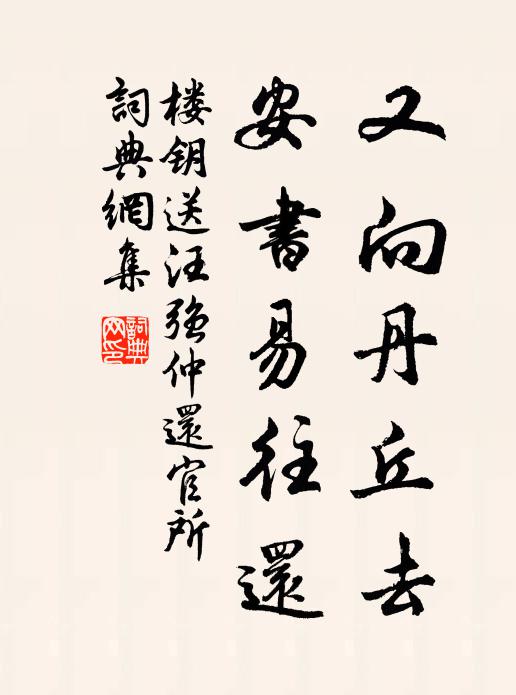 又向丹丘去
安書易往還
楼钥送汪强仲還官所
詞典網集
詞典
网印